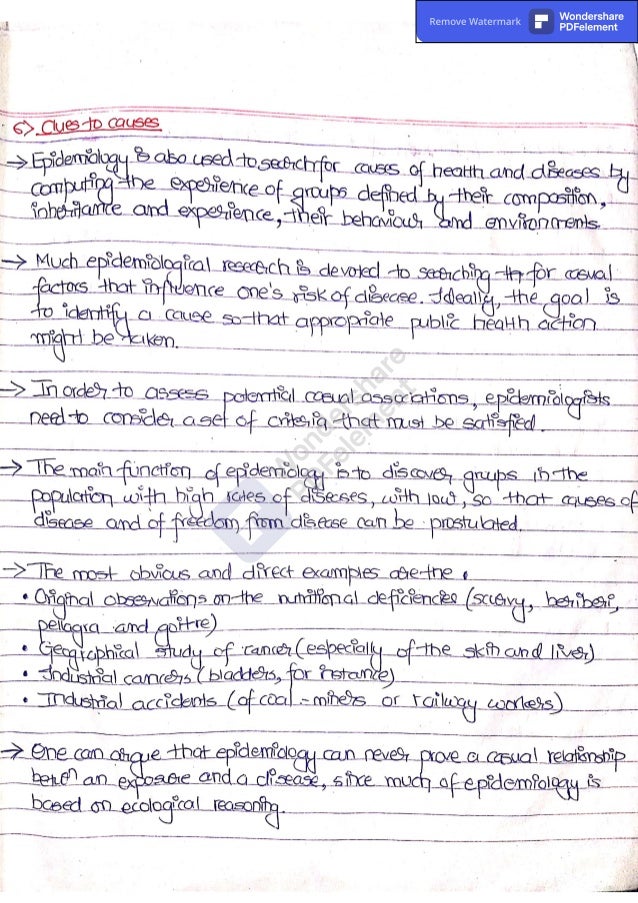 Remove Watermark
Wondershare
PDFelement
6) Clues to causes
→ Epidemiology is also used to search for causes of health and diseases by
computing the experience of groups defined by their composition,
inheritance and experience, their behaviour and environments.
→ Much epidemiological research is devoted to searching for casual
factors that influence one's risk of disease. Ideally, the goal is
to identify a cause so that appropriate public health action
might be taken.
→ In order to assess potential casual associations, epidemiologists
need to consider a set of criteria that must be satisfied.
→ The main function of epidemiology is to discover groups in the
population with high rates of diseases, with low, so that causes of
disease and of freedom from disease can be prostulated.
→ The most obvious and direct examples are the
• Original observations on the nutritional deficiencies (scurvy, beriberi,
pellagra and goitre)
• Geographical study of cancer (especially of the skin and liver)
• Industrial cancers (bladders, for instance)
• Industrial accidents (of coal-miners or railway workers)
→ One can argue that epidemiology can never prove a casual relationship
betⁿ an exposure and a disease, since much of epidemiology is
based on ecological reasoning.
Wondershare
PDFelement